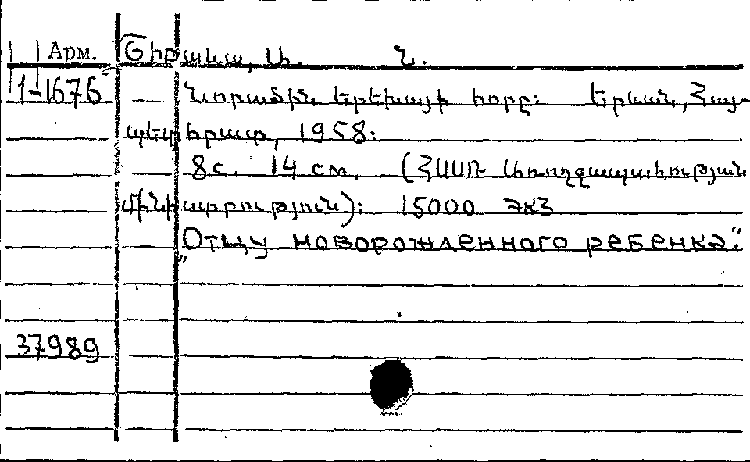 Арм. Ծիրանա, Ա. Ն.
1-1676 Նորածին երեխայի հորը։ Երևան, Հայ-
պետհրատ, 1958։
8 с. 14 см. (ՀՍՍՌ Առողջապահության
մինիստրություն)։ 15000 экз
"Отцу новорожденного ребенка".
37989